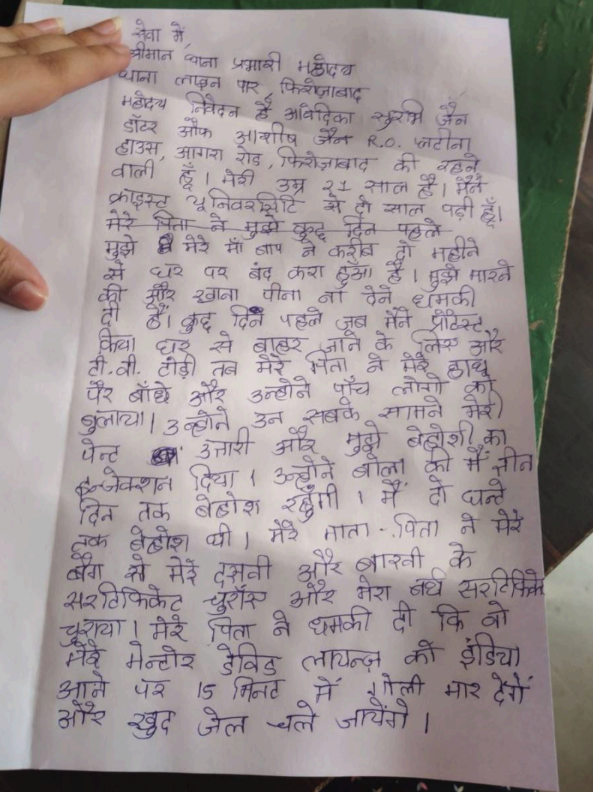 सेवा में,
श्रीमान थाना प्रभारी महोदय
थाना लाइन पार, फिरोजाबाद
महोदय निवेदन है आवेदिका सुरभि जैन
डॉटर ऑफ आशीष जैन R.O. प्लटीना
हाउस, आगरा रोड, फिरोजाबाद की रहने
वाली हूँ। मेरी उम्र २१ साल है। मैंने
क्राइस्ट यूनिवरसिटि से दो साल पढ़ी हूँ।
मेरे पिता ने मुझे कुछ दिन पहले
मुझे मेरे माँ बाप ने करीब दो महीने
से घर पर बंद करा हुआ है। मुझे मारने
की और खाना पीना ना देने धमकी
दी है। कुछ दिन पहले जब मैंने प्रोटेस्ट
किया घर से बाहर जाने के लिए और
टी.वी. तोड़ी तब मेरे पिता ने मेरे हाथ
पैर बाँधे और उन्होंने पाँच लोगो को
बुलाया। उन्होंने उन सबके सामने मेरी
पेन्ट उतारी और मुझे बेहोशी का
इन्जेक्शन दिया। उन्होंने बोला की मैं तीन
दिन तक बेहोश रहूँगी। मैं दो घन्टे
तक बेहोश थी। मेरे माता-पिता ने मेरे
बैग से मेरे दसवी और बारवी के
सरटिफिकेट चुराए और मेरा बर्थ सरटिफिकेट
चुराया। मेरे पिता ने धमकी दी कि वो
मेरे मेन्टोर डेविड लायन्ज़ को इंडिया
आने पर 15 मिनट में गोली मार देंगे
और खुद जेल चले जायेंगे।